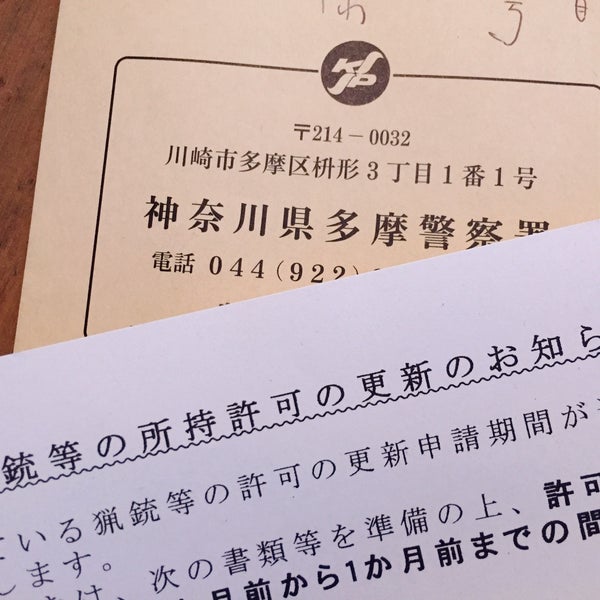 号
KP
〒214-0032
川崎市多摩区枡形3丁目1番1号
神奈川県多摩警察署
電話 044(922)
銃等の所持許可の更新のお知ら
いる猟銃等の許可の更新申請期間が
します。
は、次の書類等を準備の上、許可
月前から1か月前までの間